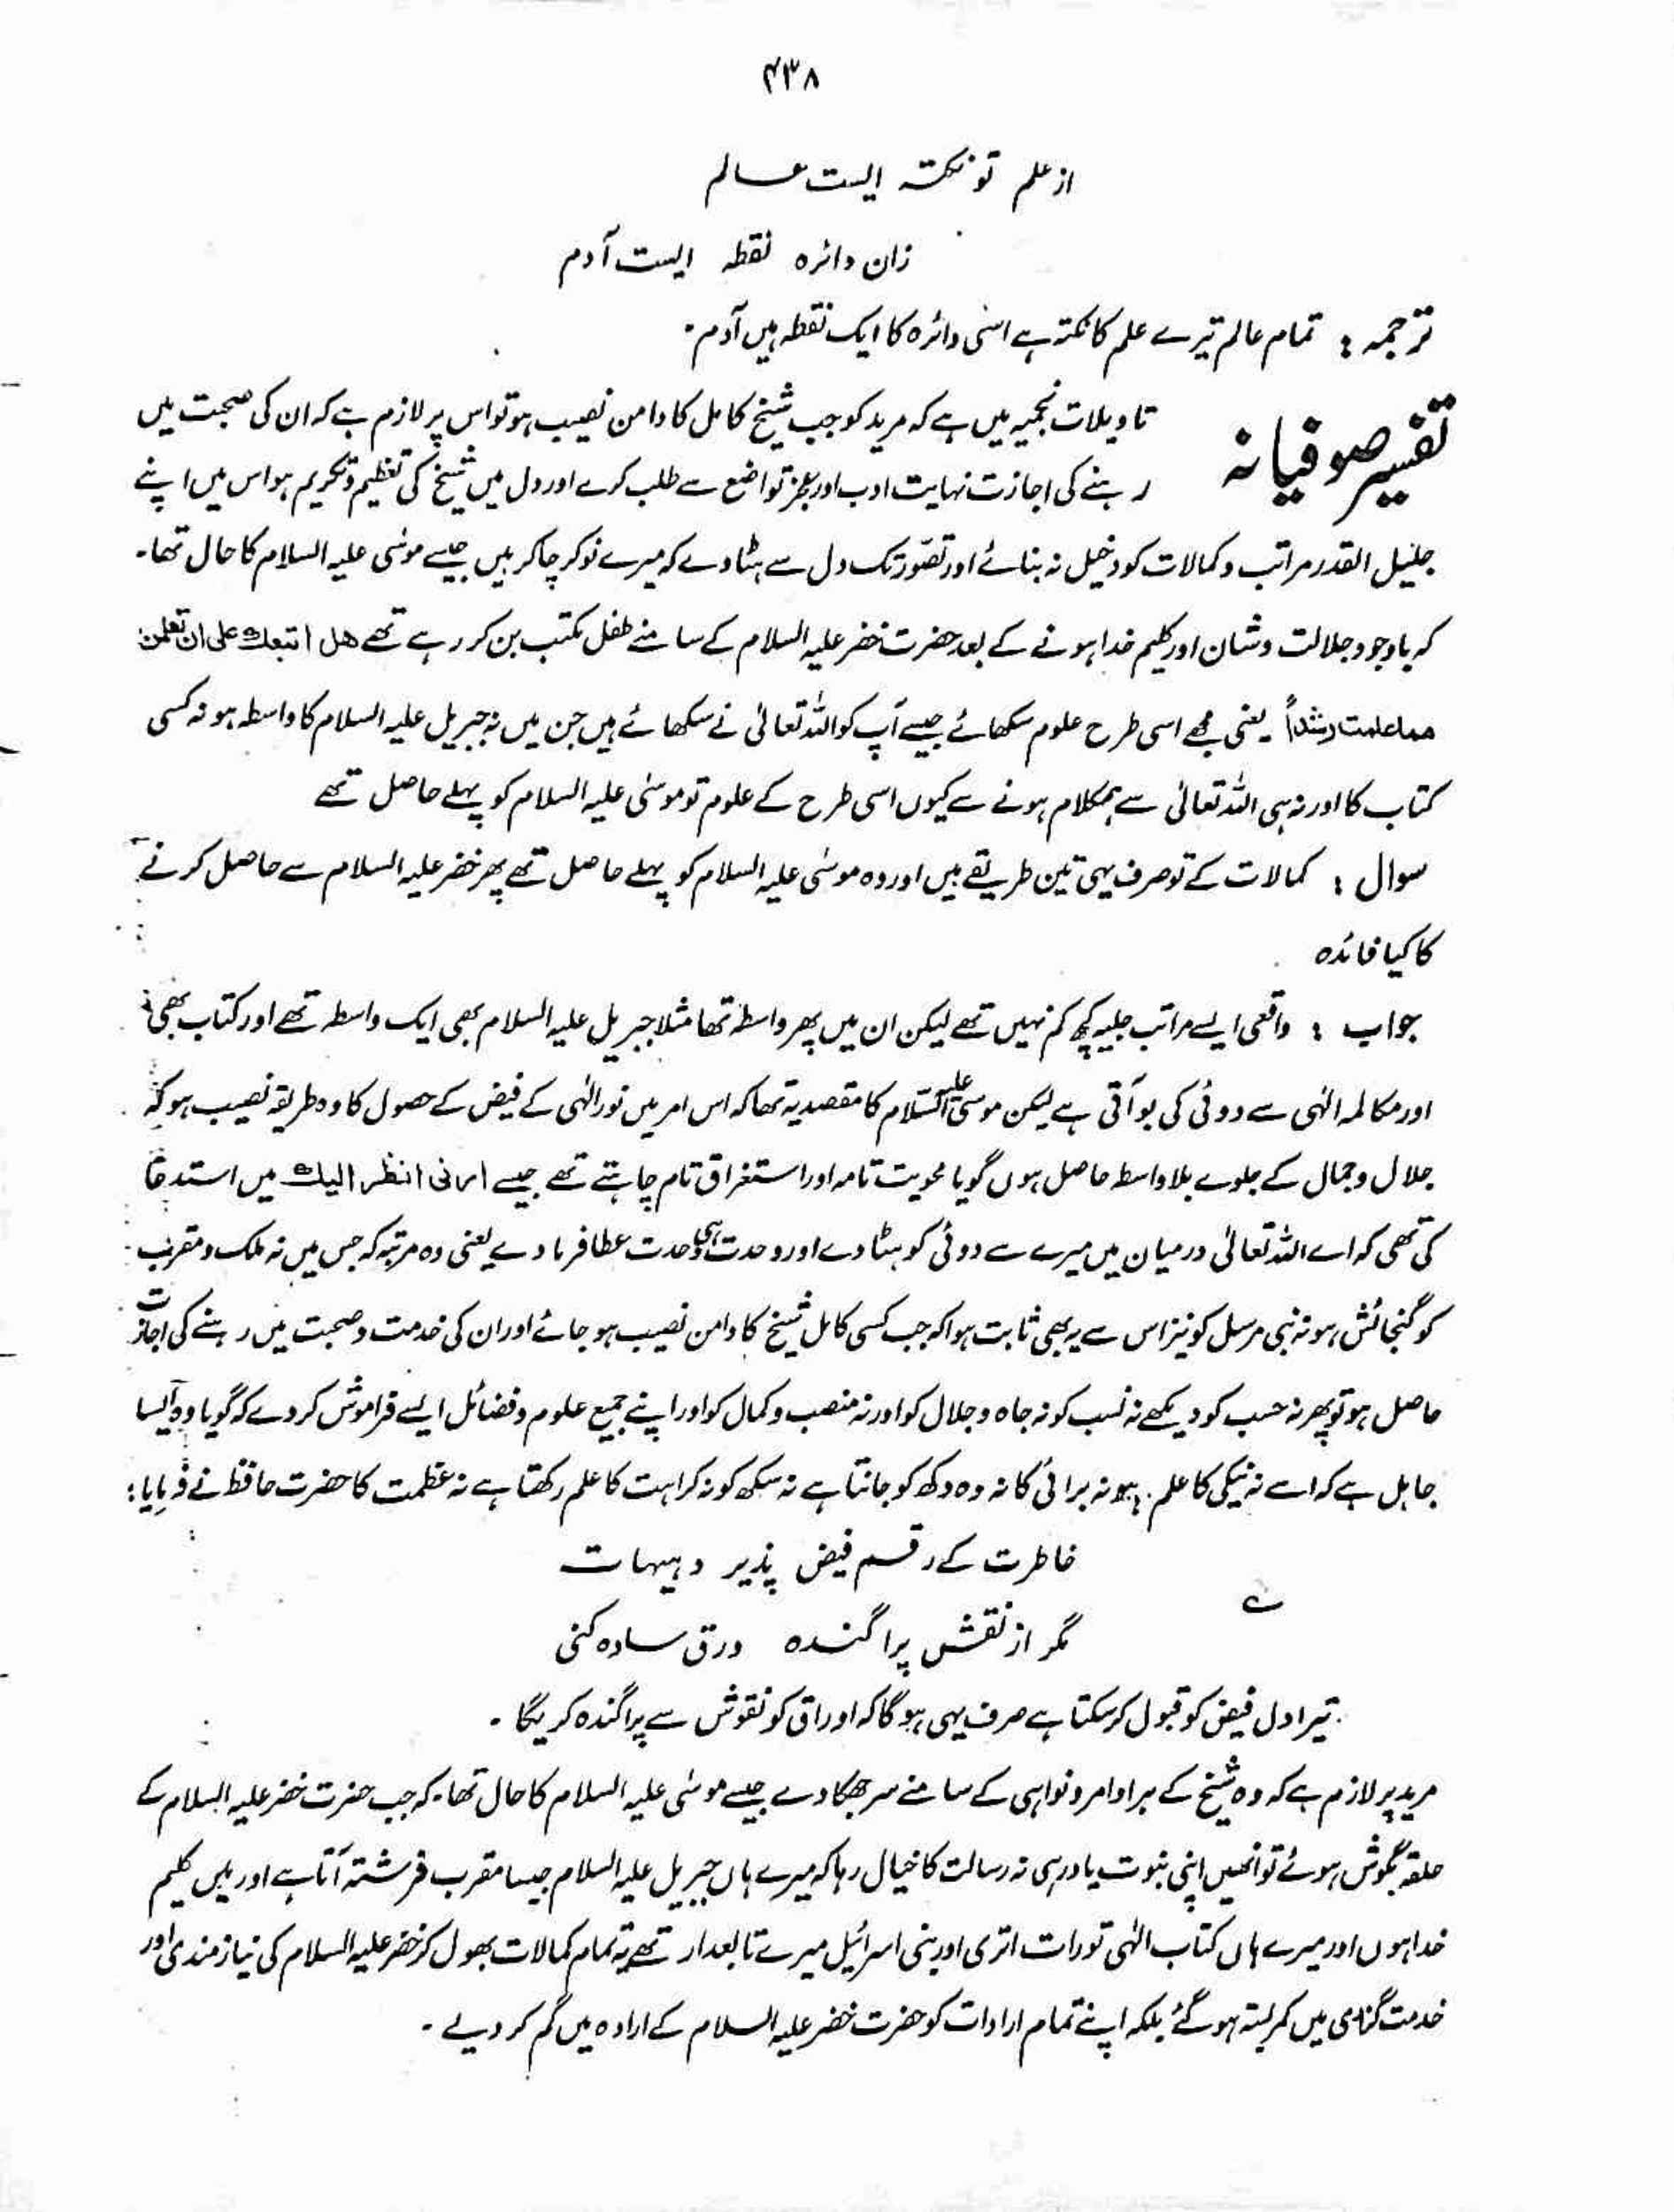 ۴۳۸
از علم تو نکتہ ایست عالم
زان دائرہ نقطہ ایست آدم
ترجمہ : تمام عالم تیرے علم کا نکتہ ہے اسی دائرہ کا ایک نقطہ ہیں آدم۔
تفسیر صوفیانہ
تاویلات نجمیہ میں ہے کہ مرید کو جب شیخ کامل کا دامن نصیب ہو تو اس پر لازم ہے کہ ان کی صحبت میں
رہنے کی اجازت نہایت ادب اور عجز تواضع سے طلب کرے اور دل میں شیخ کی تعظیم و تکریم ہو اس میں اپنے
جلیل القدر مراتب و کمالات کو دخیل نہ بنائے اور تصور تک دل سے ہٹا دے کہ میرے نوکر چاکر ہیں جیسے موسٰی علیہ السلام کا حال تھا۔
کہ باوجود جلالت و شان اور کلیم خدا ہونے کے بعد حضرت خضر علیہ السلام کے سامنے طفل مکتب بن کر رہے تھے ھل اتبعك علی ان تعلمن
مما علمت رشداً ۔ یعنی مجھے اسی طرح علوم سکھائے جیسے آپ کو اللہ تعالٰی نے سکھائے ہیں جن میں نہ جبریل علیہ السلام کا واسطہ ہو نہ کسی
کتاب کا اور نہ ہی اللہ تعالٰی سے ہمکلام ہونے سے کیوں اسی طرح کے علوم تو موسٰی علیہ السلام کو پہلے حاصل تھے
سوال : کمالات کے تو صرف یہی تین طریقے ہیں اور وہ موسٰی علیہ السلام کو پہلے حاصل تھے پھر خضر علیہ السلام سے حاصل کرنے
کا کیا فائدہ
جواب : واقعی ایسے مراتب جلیہ کچھ کم نہیں تھے لیکن ان میں پھر واسطہ تھا مثلا جبریل علیہ السلام بھی ایک واسطہ تھے اور کتاب بھی
اور مکالمہ الٰہی سے دوئی کی بو آتی ہے لیکن موسٰی علیہ السّلام کا مقصد یہ تھا کہ اس امر میں نور الٰہی کے فیض کے حصول کا وہ طریقہ نصیب ہو کہ
جلال و جمال کے جلوے بلا واسطہ حاصل ہوں گویا محویت تامہ اور استغراق تام چاہتے تھے جیسے ارنی انظر الیك میں استدعا
کی تھی کہ اے اللہ تعالٰی درمیان میں میرے سے دوئی کو ہٹا دے اور وحدت ہی وحدت عطا فرما دے یعنی وہ مرتبہ کہ جس میں نہ ملک و مقرب
کو گنجائش ہو نہ نبی مرسل کو نیز اس سے یہ بھی ثابت ہوا کہ جب کسی کامل شیخ کا دامن نصیب ہو جائے اور ان کی خدمت و صحبت میں رہنے کی اجازت
حاصل ہو تو پھر نہ حسب کو دیکھے نہ نسب کو نہ جاہ و جلال کو اور نہ منصب و کمال کو اور اپنے جمیع علوم و فضائل ایسے فراموش کر دے کہ گویا وہ ایسا
جاہل ہے کہ اسے نہ نیکی کا علم ہو نہ برائی کا نہ وہ دکھ کو جانتا ہے نہ سکھ کو نہ کراہت کا علم رکھتا ہے نہ عظمت کا حضرت حافظ نے فرمایا :
خاطرت کے رقم فیض پذیر د ہیہات
مگر از نقش پراگندہ ورق سادہ کنی
تیرا دل فیض کو قبول کر سکتا ہے صرف یہی ہو گا کہ اوراق کو نقوش سے پراگندہ کریگا ۔
مرید پر لازم ہے کہ وہ شیخ کے ہر اوامر و نواہی کے سامنے سر جھکا دے جیسے موسٰی علیہ السلام کا حال تھا۔ کہ جب حضرت خضر علیہ السلام کے
حلقہ بگوش ہوئے تو انھیں اپنی نبوت یاد رہی نہ رسالت کا خیال رہا کہ میرے ہاں جبریل علیہ السلام جیسا مقرب فرشتہ آتا ہے اور میں کلیم
خدا ہوں اور میرے ہاں کتاب الٰہی تورات اتری اور بنی اسرائیل میرے تابعدار تھے یہ تمام کمالات بھول کر خضر علیہ السلام کی نیاز مندی اور
خدمت گذاری میں کمر بستہ ہو گئے بلکہ اپنے تمام ارادات کو حضرت خضر علیہ السلام کے ارادہ میں گم کر دیے ۔